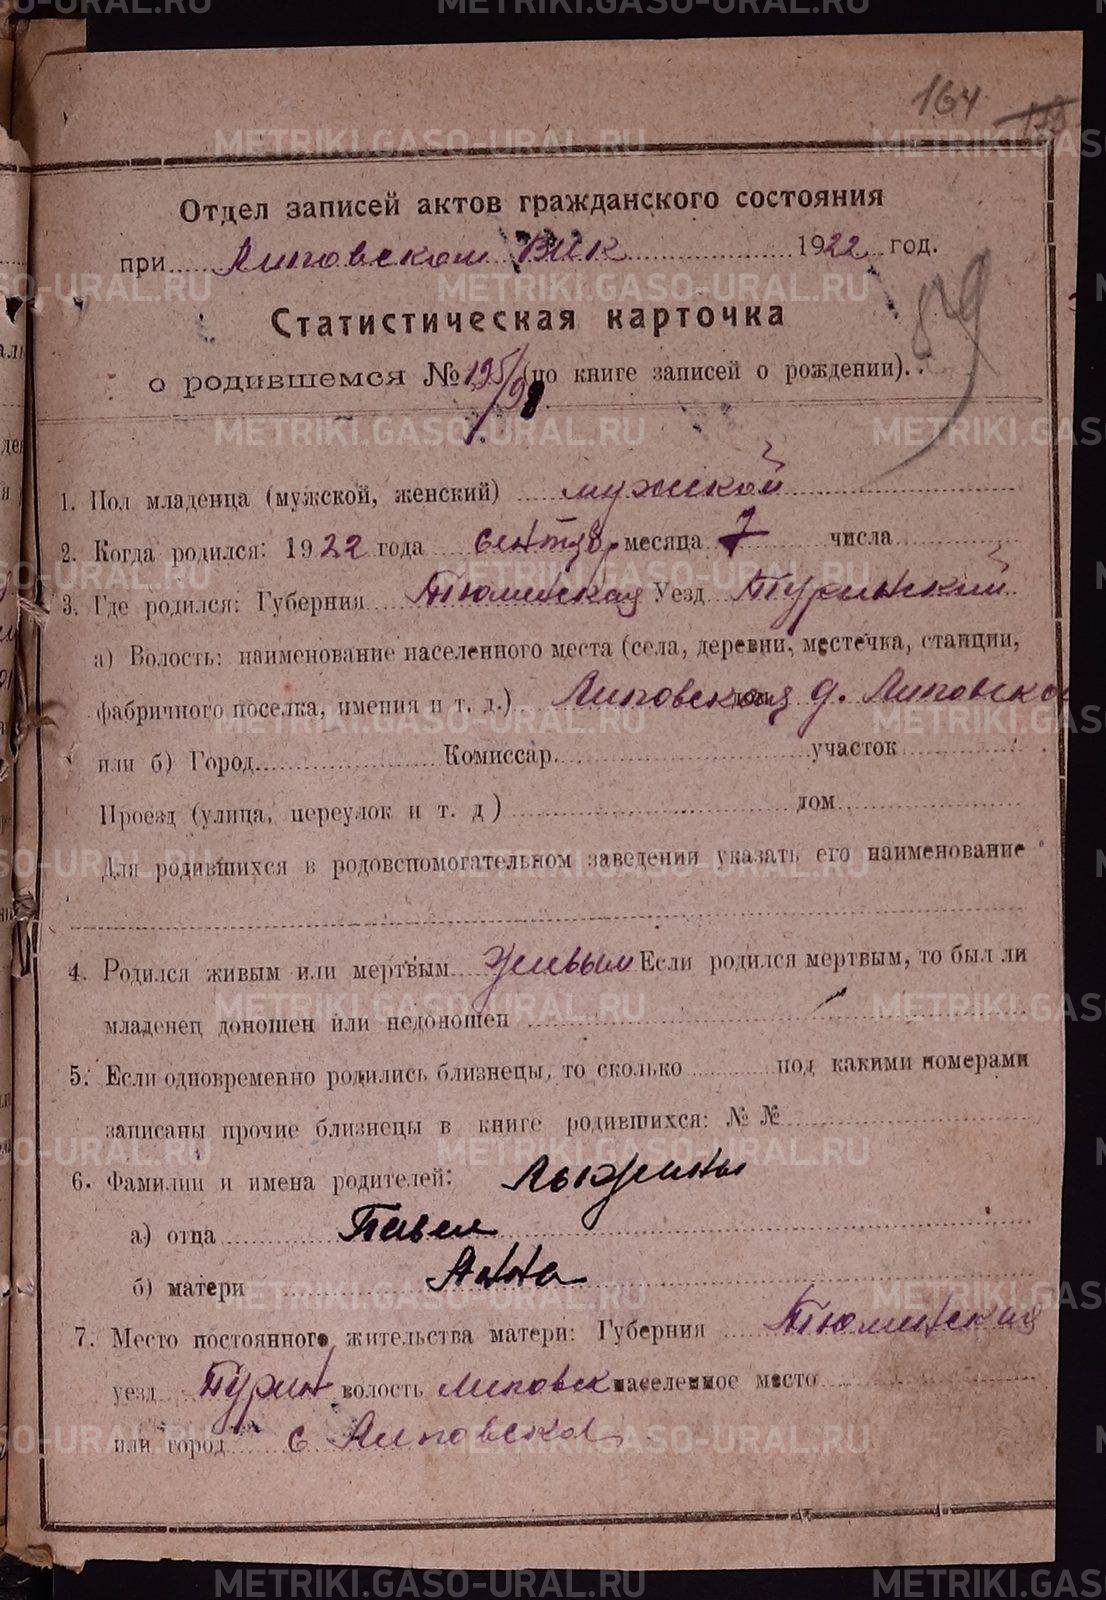 164 139
Отдел записей актов гражданского состояния
при Липовском Вик 1922 год.
Статистическая карточка
о родившемся № 195/98 (по книге записей о рождении).
1. Пол младенца (мужской, женский) мужской
2. Когда родился: 1922 года сентябр. месяца 7 числа
3. Где родился: Губерния Тюменская Уезд Туринский
а) Волость: наименование населенного места (села, деревни, местечка, станции,
фабричного поселка, имения и т. д.) Липовская д. Липовско
или б) Город Комиссар. участок
Проезд (улица, переулок и т. д) дом
Для родившихся в родовспомогательном заведении указать его наименование
4. Родился живым или мертвым живым Если родился мертвым, то был ли
младенец доношен или недоношен
5. Если одновременно родились близнецы, то сколько под какими номерами
записаны прочие близнецы в книге родившихся: № №
6. Фамилии и имена родителей:
а) отца Павел
б) матери Анна
7. Место постоянного жительства матери: Губерния Тюменская
уезд Турин волость Липовск населенное место
или город с Липовско
METRIKI.GASO-URAL.RU